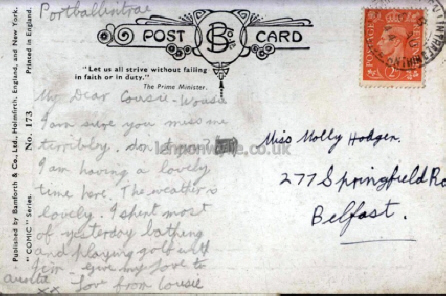 Portballintrae
POST CARD
"Let us all strive without failing
in faith or in duty."
The Prime Minister.
My Dear Cousie-Wousie
I am sure you miss me
terribly, don't you.
I am having a lovely
time here. The weather is
lovely. I spent most
of yesterday bathing
and playing golf with
give my love to
love from Cousie
xx
Miss Molly Hodgen.
277 Springfield Ro
Belfast.
Published by Bamforth & Co., Ltd., Holmfirth, England, and New York.
"COMIC" Series No. 173
Printed in England.
POSTAGE